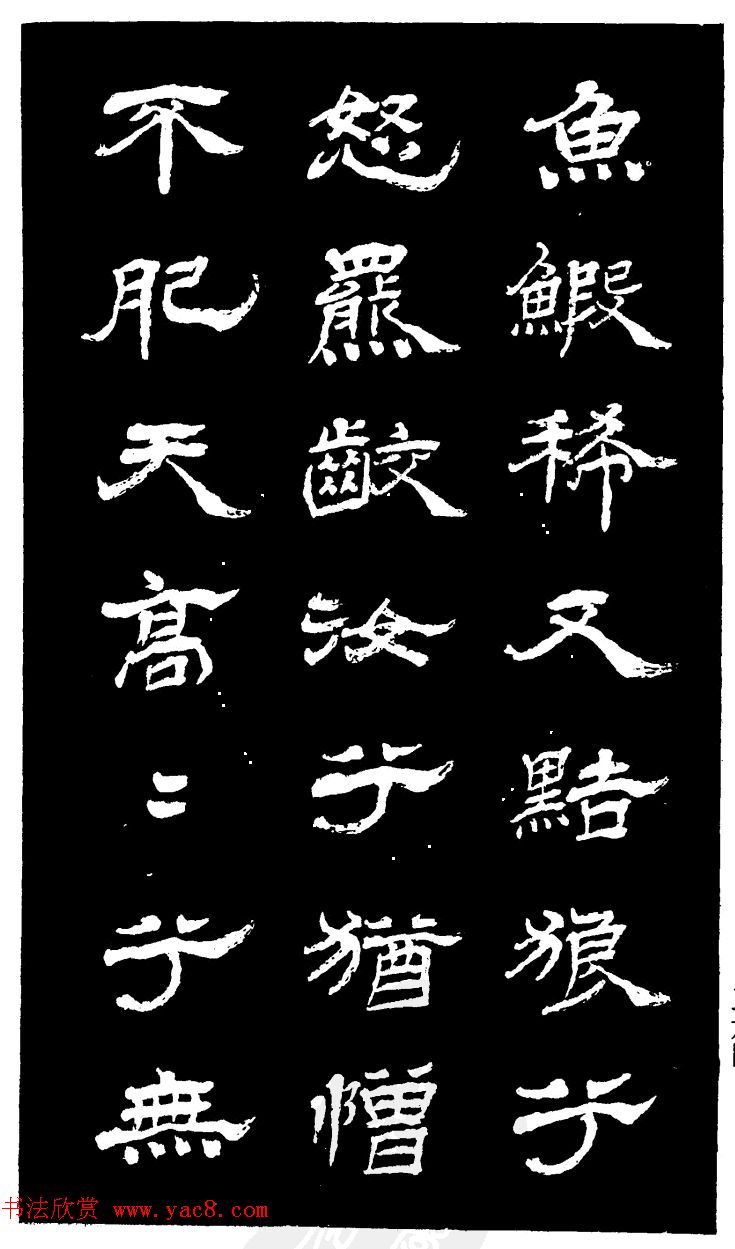 魚鰕稀又黠狼乎
怒羆齩汝乎猶憎
不肥天高〻乎無
书法欣赏 www.yac8.com